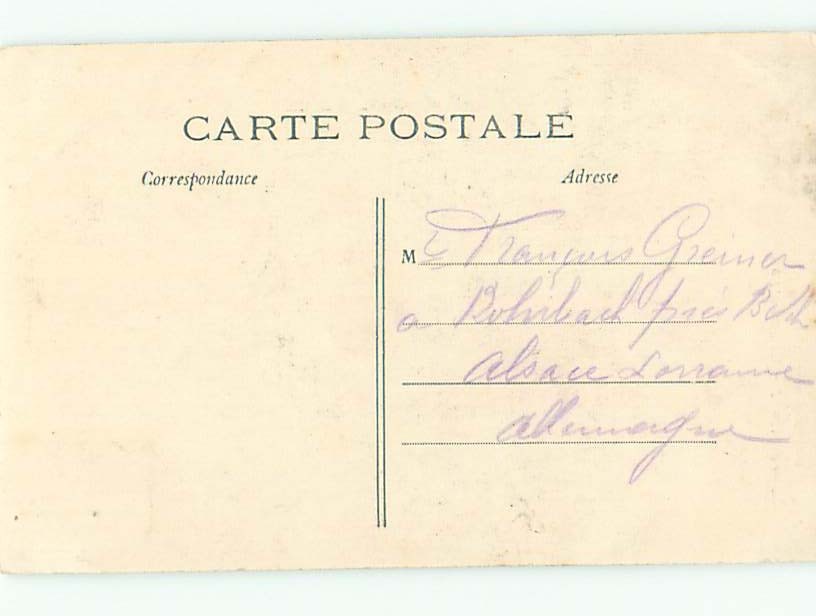 CARTE POSTALE
Correspondance
Adresse
M r François Greiner
a Rohrbach près
Alsace Lorraine
Allemagne